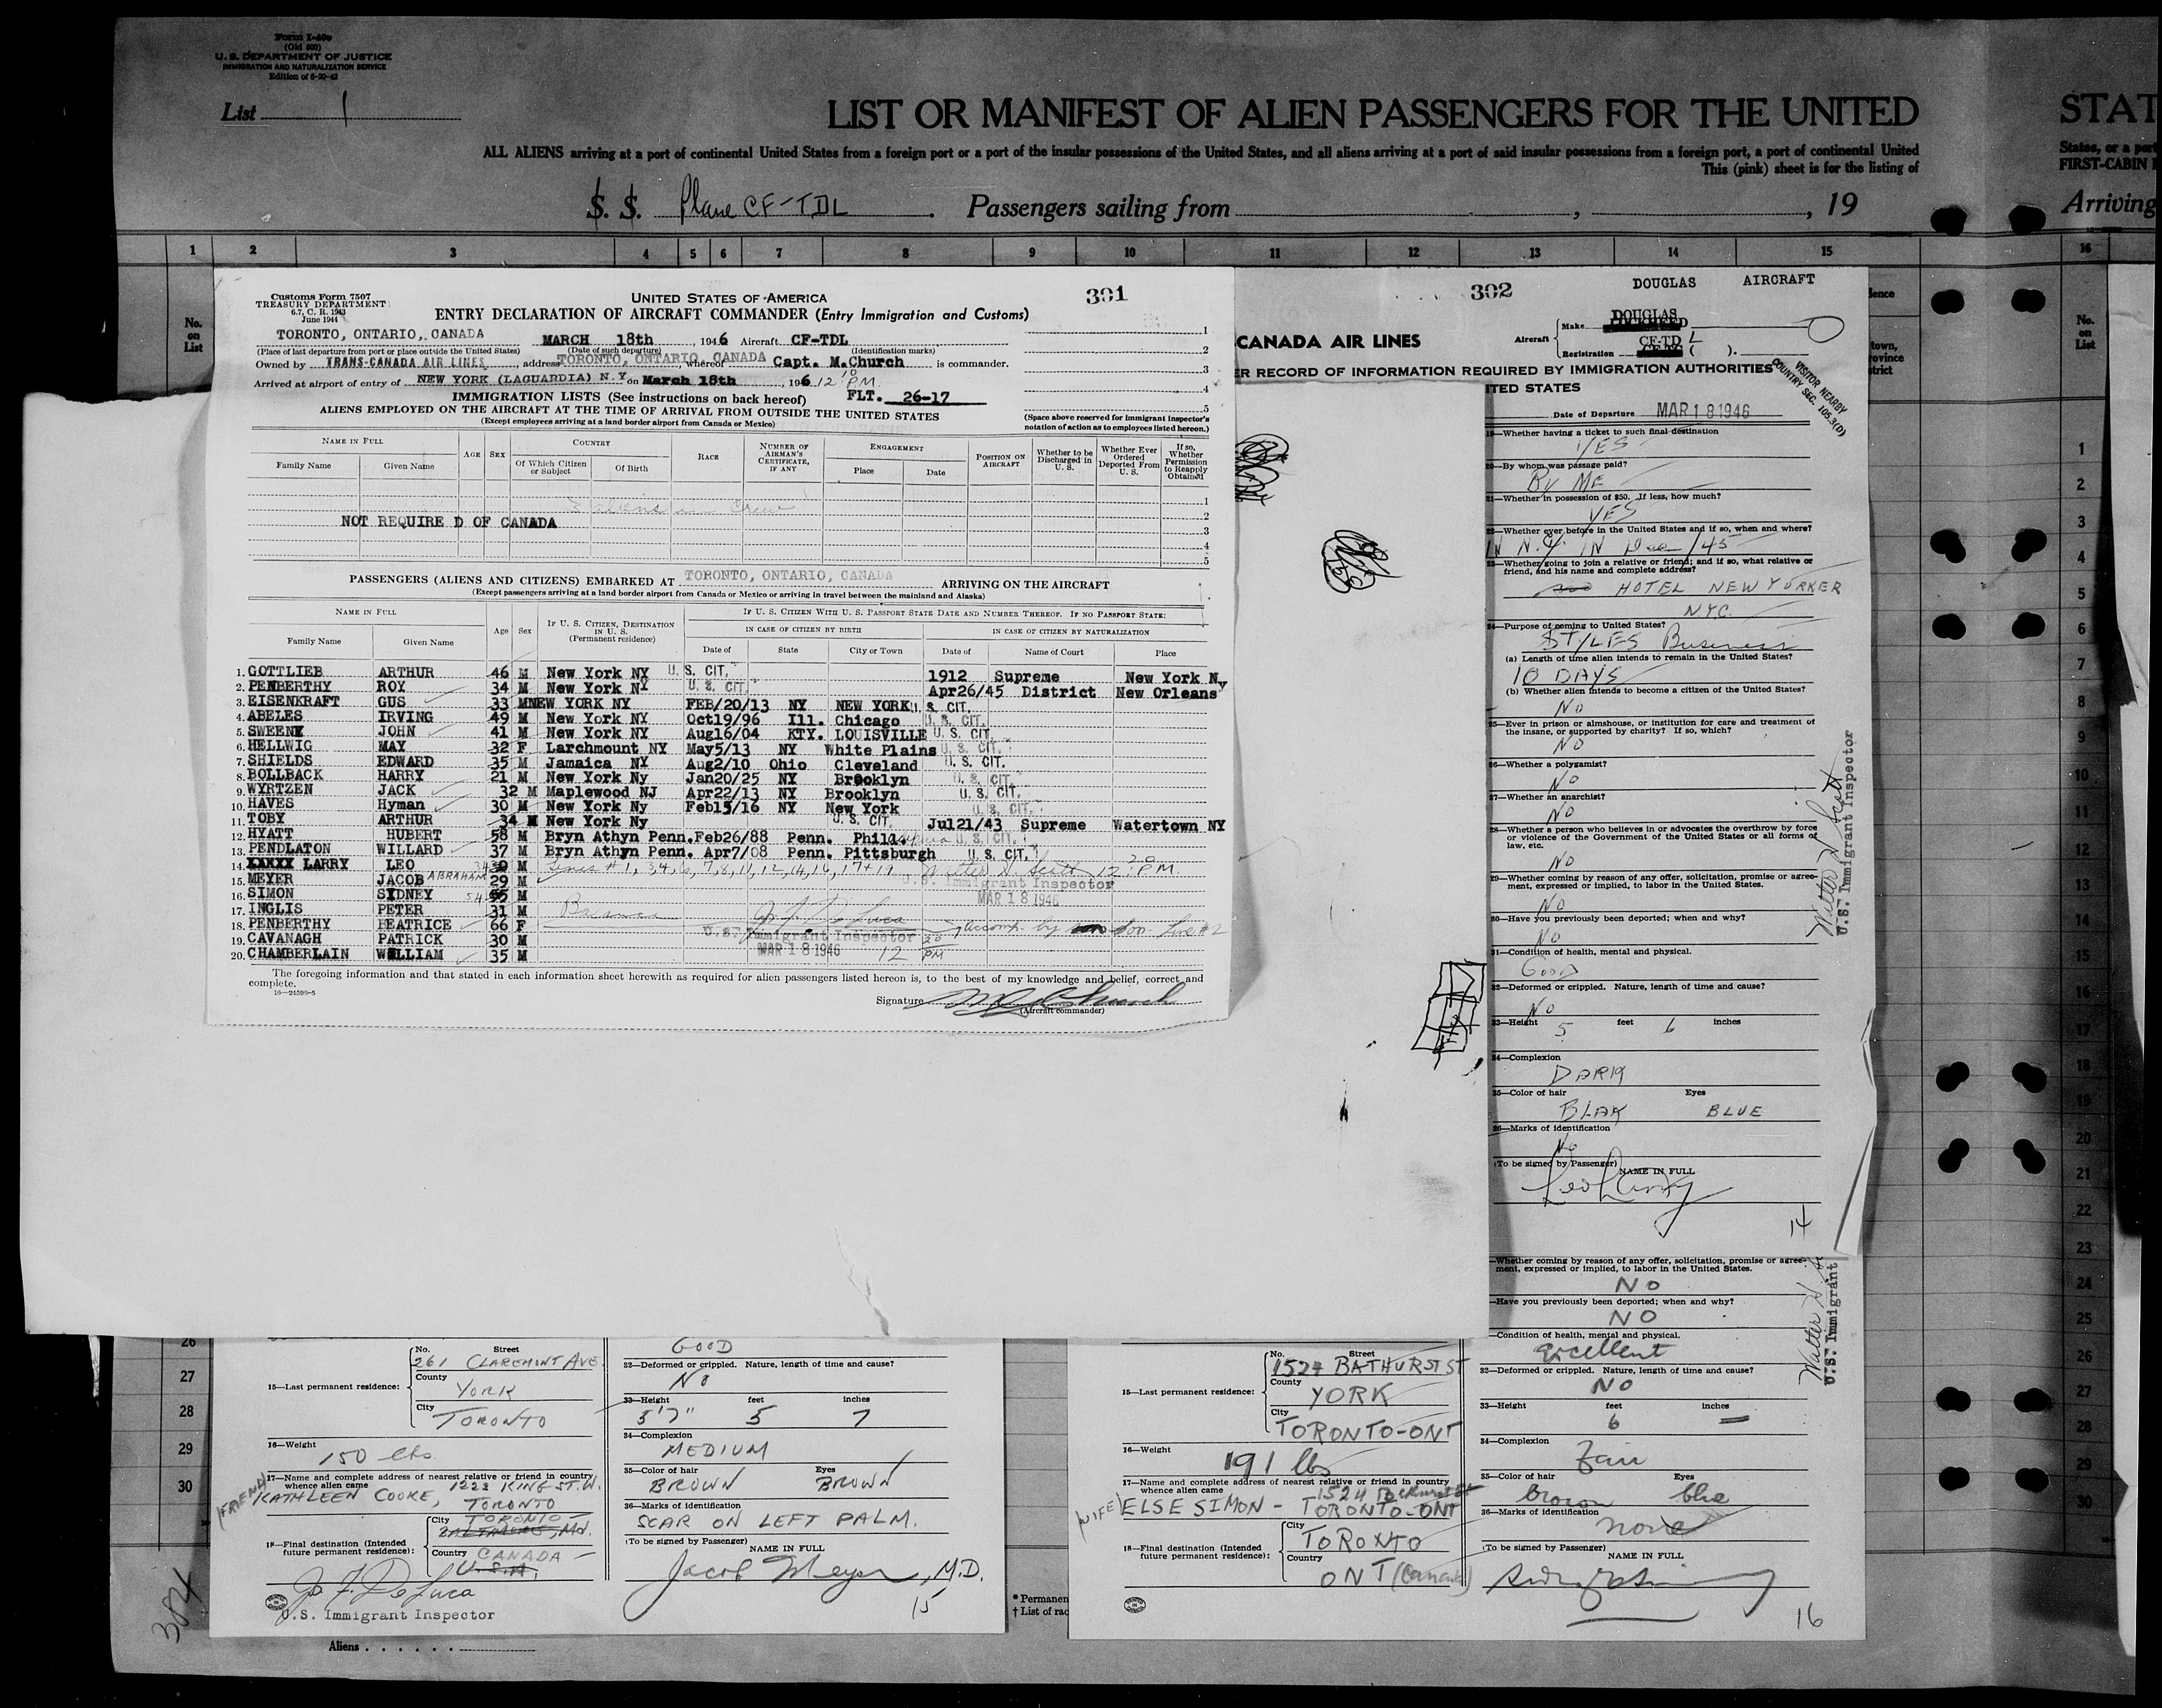 Form I-400
(Old 500)
U. S. DEPARTMENT OF JUSTICE
IMMIGRATION AND NATURALIZATION SERVICE
Edition of 6-20-42
List 1
LIST OR MANIFEST OF ALIEN PASSENGERS FOR THE UNITED
STAT
ALL ALIENS arriving at a port of continental United States from a foreign port or a port of the insular possessions of the United States, and all aliens arriving at a port of said insular possessions from a foreign port, a port of continental United
This (pink) sheet is for the listing of
States, or a port
FIRST-CABIN
S. S. Plane CF-TDL. Passengers sailing from , , 19
Arriving
1 2 3 4 5 6 7 8 9 10 11 12 13 14 15 16
No. on List
Customs Form 7507
TREASURY DEPARTMENT
6.7, C. R. 1943
June 1944
UNITED STATES OF AMERICA
301
ENTRY DECLARATION OF AIRCRAFT COMMANDER (Entry Immigration and Customs)
TORONTO, ONTARIO, CANADA MARCH 18th, 1946 Aircraft CF-TDL
(Place of last departure from port or place outside the United States) (Date of such departure) (Identification marks)
Owned by TRANS-CANADA AIR LINES, address TORONTO, ONTARIO, CANADA, whereof Capt. M.Church is commander.
Arrived at airport of entry of NEW YORK (LAGUARDIA) N.Y. on March 18th, 1946 12 10 P.M.
IMMIGRATION LISTS (See instructions on back hereof) FLT. 26-17
ALIENS EMPLOYED ON THE AIRCRAFT AT THE TIME OF ARRIVAL FROM OUTSIDE THE UNITED STATES
(Except employees arriving at a land border airport from Canada or Mexico)
(Space above reserved for immigrant inspector's notation of action as to employees listed hereon.)
NAME IN FULL AGE SEX COUNTRY RACE NUMBER OF AIRMAN'S CERTIFICATE, IF ANY ENGAGEMENT POSITION ON AIRCRAFT Whether to be Discharged in U. S. Whether Ever Ordered Deported From U. S. If so, Whether Permission to Reapply Obtained
Family Name Given Name Of Which Citizen or Subject Of Birth Place Date
3 aliens in crew
NOT REQUIRE D OF CANADA
PASSENGERS (ALIENS AND CITIZENS) EMBARKED AT TORONTO, ONTARIO, CANADA ARRIVING ON THE AIRCRAFT
(Except passengers arriving at a land border airport from Canada or Mexico or arriving in travel between the mainland and Alaska)
NAME IN FULL Age Sex IF U. S. CITIZEN, DESTINATION IN U. S. (Permanent residence) IF U. S. CITIZEN WITH U. S. PASSPORT STATE DATE AND NUMBER THEREOF. IF NO PASSPORT STATE:
IN CASE OF CITIZEN BY BIRTH IN CASE OF CITIZEN BY NATURALIZATION
Family Name Given Name Date of State City or Town Date of Name of Court Place
1. GOTTLIEB ARTHUR 46 M New York NY U. S. CIT. 1912 Supreme New York Ny
2. PENBERTHY ROY 34 M New York NY U. S. CIT. Apr26/45 District New Orleans
3. EISENKRAFT GUS 33 M NEW YORK NY FEB/20/13 NY NEW YORK U. S. CIT.
4. ABELES IRVING 49 M New York NY Oct19/96 Ill. Chicago U. S. CIT.
5. SWEENY JOHN 41 M New York NY Aug16/04 KTY. LOUISVILLE U. S. CIT.
6. HELLWIG MAY 32 F Larchmount NY May5/13 NY White Plains U. S. CIT.
7. SHIELDS EDWARD 35 M Jamaica NY Aug2/10 Ohio Cleveland U. S. CIT.
8. BOLLBACK HARRY 21 M New York Ny Jan20/25 NY Brooklyn U. S. CIT.
9. WYRTZEN JACK 32 M Maplewood NJ Apr22/13 NY Brooklyn U. S. CIT.
10. HAVES Hyman 30 M New York Ny Feb15/16 NY New York U. S. CIT.
11. TOBY ARTHUR 34 M New York Ny U. S. CIT. Jul21/43 Supreme Watertown NY
12. HYATT HUBERT 58 M Bryn Athyn Penn. Feb26/88 Penn. Phila U. S. CIT.
13. PENDLATON WILLARD 37 M Bryn Athyn Penn. Apr7/08 Penn. Pittsburgh U. S. CIT.
14. XXXXX LARRY LEO 30 M Lines # 1, 3, 4, 6, 7, 8, 11, 12, 14, 16, 17 + 19 Walter H. Scott 12 20 P.M.
15. MEYER JACOB ABRAHAM 29 M U.S. Immigrant Inspector
16. SIMON SYDNEY 54 55 M MAR 18 1946
17. INGLIS PETER 31 M
18. PENBERTHY BEATRICE 66 F Jo. F. DeLuca accomp. by son Line #2
19. CAVANAGH PATRICK 30 M U.S. Immigrant Inspector
20. CHAMBERLAIN WILLIAM 35 M MAR 18 1946 12 20 PM
The foregoing information and that stated in each information sheet herewith as required for alien passengers listed hereon is, to the best of my knowledge and belief, correct and complete.
16—24590-5
Signature
(Aircraft commander)
302 DOUGLAS AIRCRAFT
CANADA AIR LINES
Aircraft Make DOUGLAS LOCKHEED
Registration CF-TD L ( ).
ER RECORD OF INFORMATION REQUIRED BY IMMIGRATION AUTHORITIES
ITED STATES
VISITOR NEARBY COUNTRY SEC. 105.3(D)
Date of Departure MAR 18 1946
19—Whether having a ticket to such final destination
YES
20—By whom was passage paid?
By ME
21—Whether in possession of $50. If less, how much?
YES
22—Whether ever before in the United States and if so, when and where?
IN N.Y. IN Dec /45
23—Whether going to join a relative or friend; and if so, what relative or friend, and his name and complete address?
HOTEL NEW YORKER
NYC.
24—Purpose of coming to United States?
STYLES Business
(a) Length of time alien intends to remain in the United States?
10 DAYS
(b) Whether alien intends to become a citizen of the United States?
No
25—Ever in prison or almshouse, or institution for care and treatment of the insane, or supported by charity? If so, which?
NO
26—Whether a polygamist?
No
27—Whether an anarchist?
NO
28—Whether a person who believes in or advocates the overthrow by force or violence of the Government of the United States or all forms of law, etc.
No
29—Whether coming by reason of any offer, solicitation, promise or agreement, expressed or implied, to labor in the United States.
No
30—Have you previously been deported; when and why?
No
31—Condition of health, mental and physical.
GOOD
32—Deformed or crippled. Nature, length of time and cause?
NO
33—Height 5 feet 6 inches
34—Complexion
DARK
35—Color of hair Eyes
BLAK BLUE
36—Marks of identification
No
(To be signed by Passenger) NAME IN FULL
Leo Larry
14
Walter H Scott
U.S. Immigrant Inspector
Whether coming by reason of any offer, solicitation, promise or agreement, expressed or implied, to labor in the United States.
NO
Have you previously been deported; when and why?
NO
Condition of health, mental and physical.
Excellent
32—Deformed or crippled. Nature, length of time and cause?
NO
33—Height feet inches
6 —
34—Complexion
Fair
35—Color of hair Eyes
brown blue
36—Marks of identification
none
(To be signed by Passenger)
NAME IN FULL
16
Walter H
U.S. Immigrant
No. Street
1524 BATHURST ST
15—Last permanent residence:
County
YORK
City
TORONTO-ONT
16—Weight
191 lbs
17—Name and complete address of nearest relative or friend in country whence alien came
1524 Bathurst St
(WIFE) ELSE SIMON - TORONTO-ONT
18—Final destination (Intended future permanent residence):
City
TORONTO
Country
ONT (Canada)
No. Street
261 CLAREMONT AVE.
15—Last permanent residence:
County
YORK
City
TORONTO
16—Weight
150 lbs
17—Name and complete address of nearest relative or friend in country whence alien came
(FRIEND) KATHLEEN COOKE, 1222 KING ST. W. TORONTO
18—Final destination (Intended future permanent residence):
City TORONTO
BALTIMORE, Md.
Country CANADA
U.S.A.
Jo. F. DeLuca
U.S. Immigrant Inspector
GOOD
32—Deformed or crippled. Nature, length of time and cause?
No
33—Height feet inches
5'7" 5 7
34—Complexion
MEDIUM
35—Color of hair Eyes
BROWN BROWN
36—Marks of identification
SCAR ON LEFT PALM.
(To be signed by Passenger)
NAME IN FULL
Jacob Meyer, M.D.
15
304
Aliens
* Permanen
† List of rac